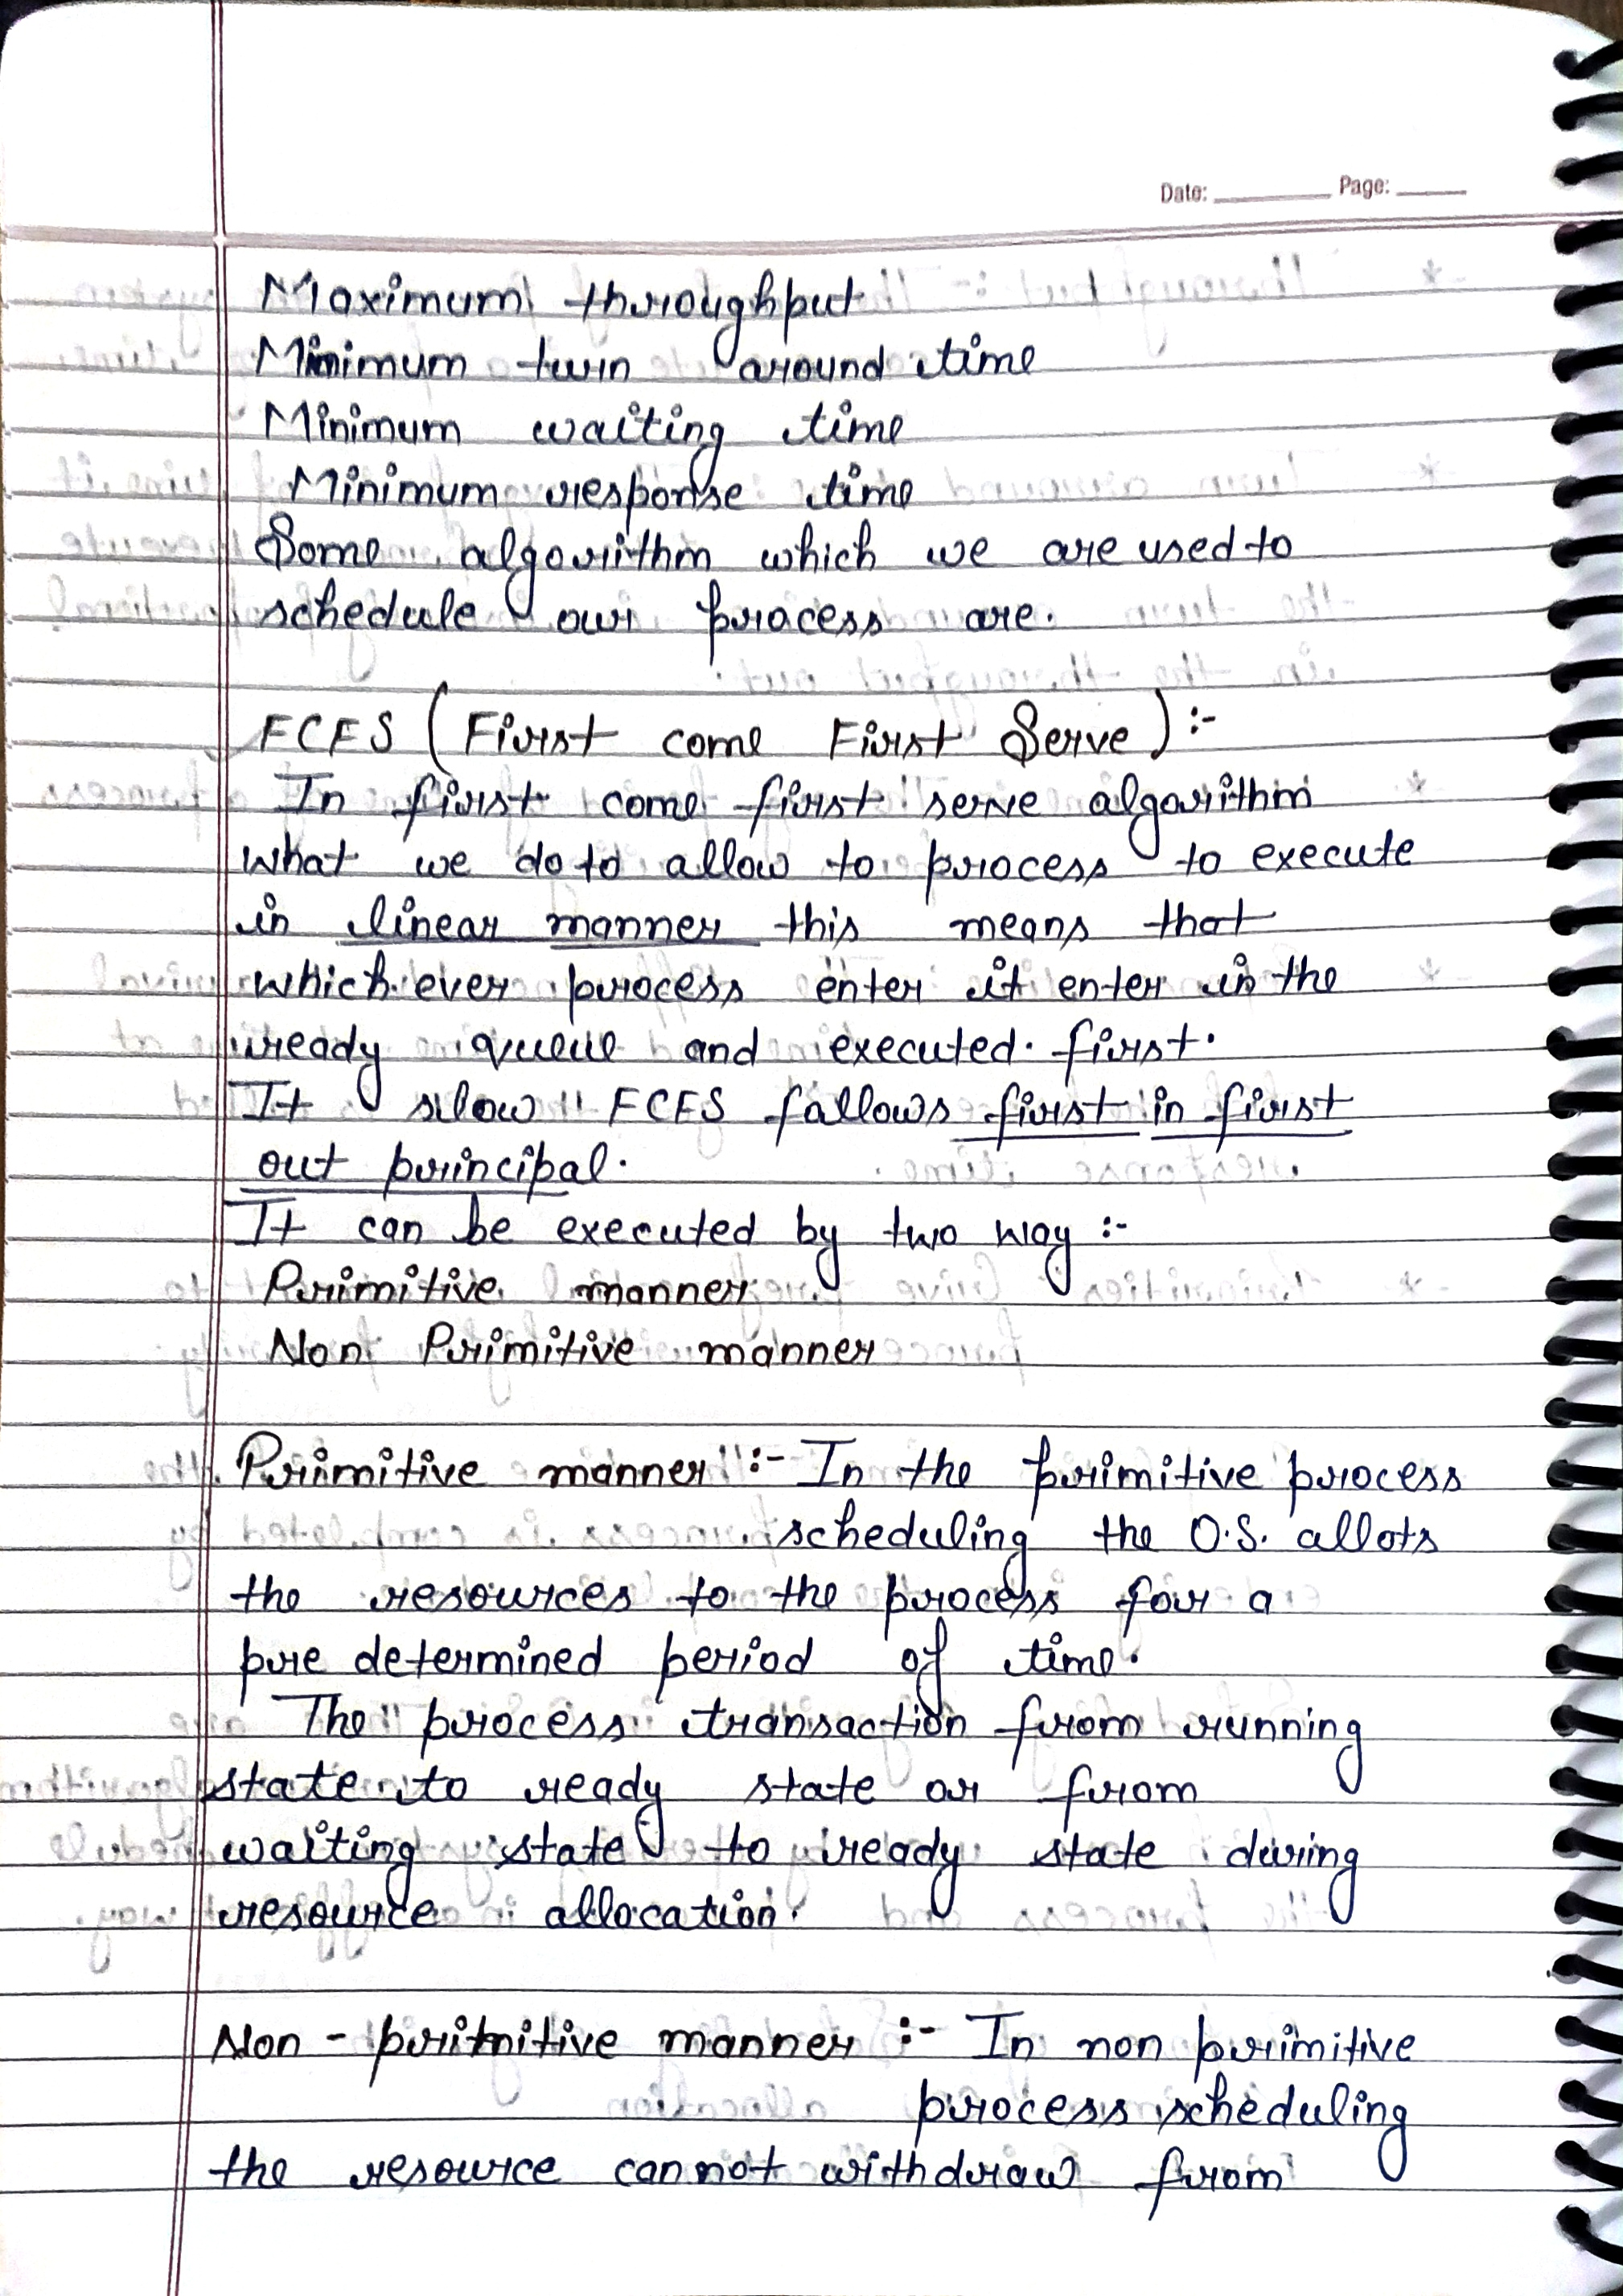 Date: Page:
Maximum throughput
Minimum turn around time
Minimum waiting time
Minimum response time
Some algorithm which we are used to
schedule our process are.
FCFS (First come First Serve) :-
In first come first serve algorithm
what we do to allow to process to execute
in linear manner this means that
which ever process enter it enter in the
ready queue and executed. first.
It slow FCFS fallows first in first
out principal.
It can be executed by two way :-
Primitive manner
Non Primitive manner
Primitive manner :- In the primitive process
scheduling the O.S. allots
the resources to the process for a
pre determined period of time.
The process transaction from running
state to ready state or from
waiting state to ready state during
resource allocation.
Non - primitive manner :- In non primitive
process scheduling
the resource cannot withdraw from